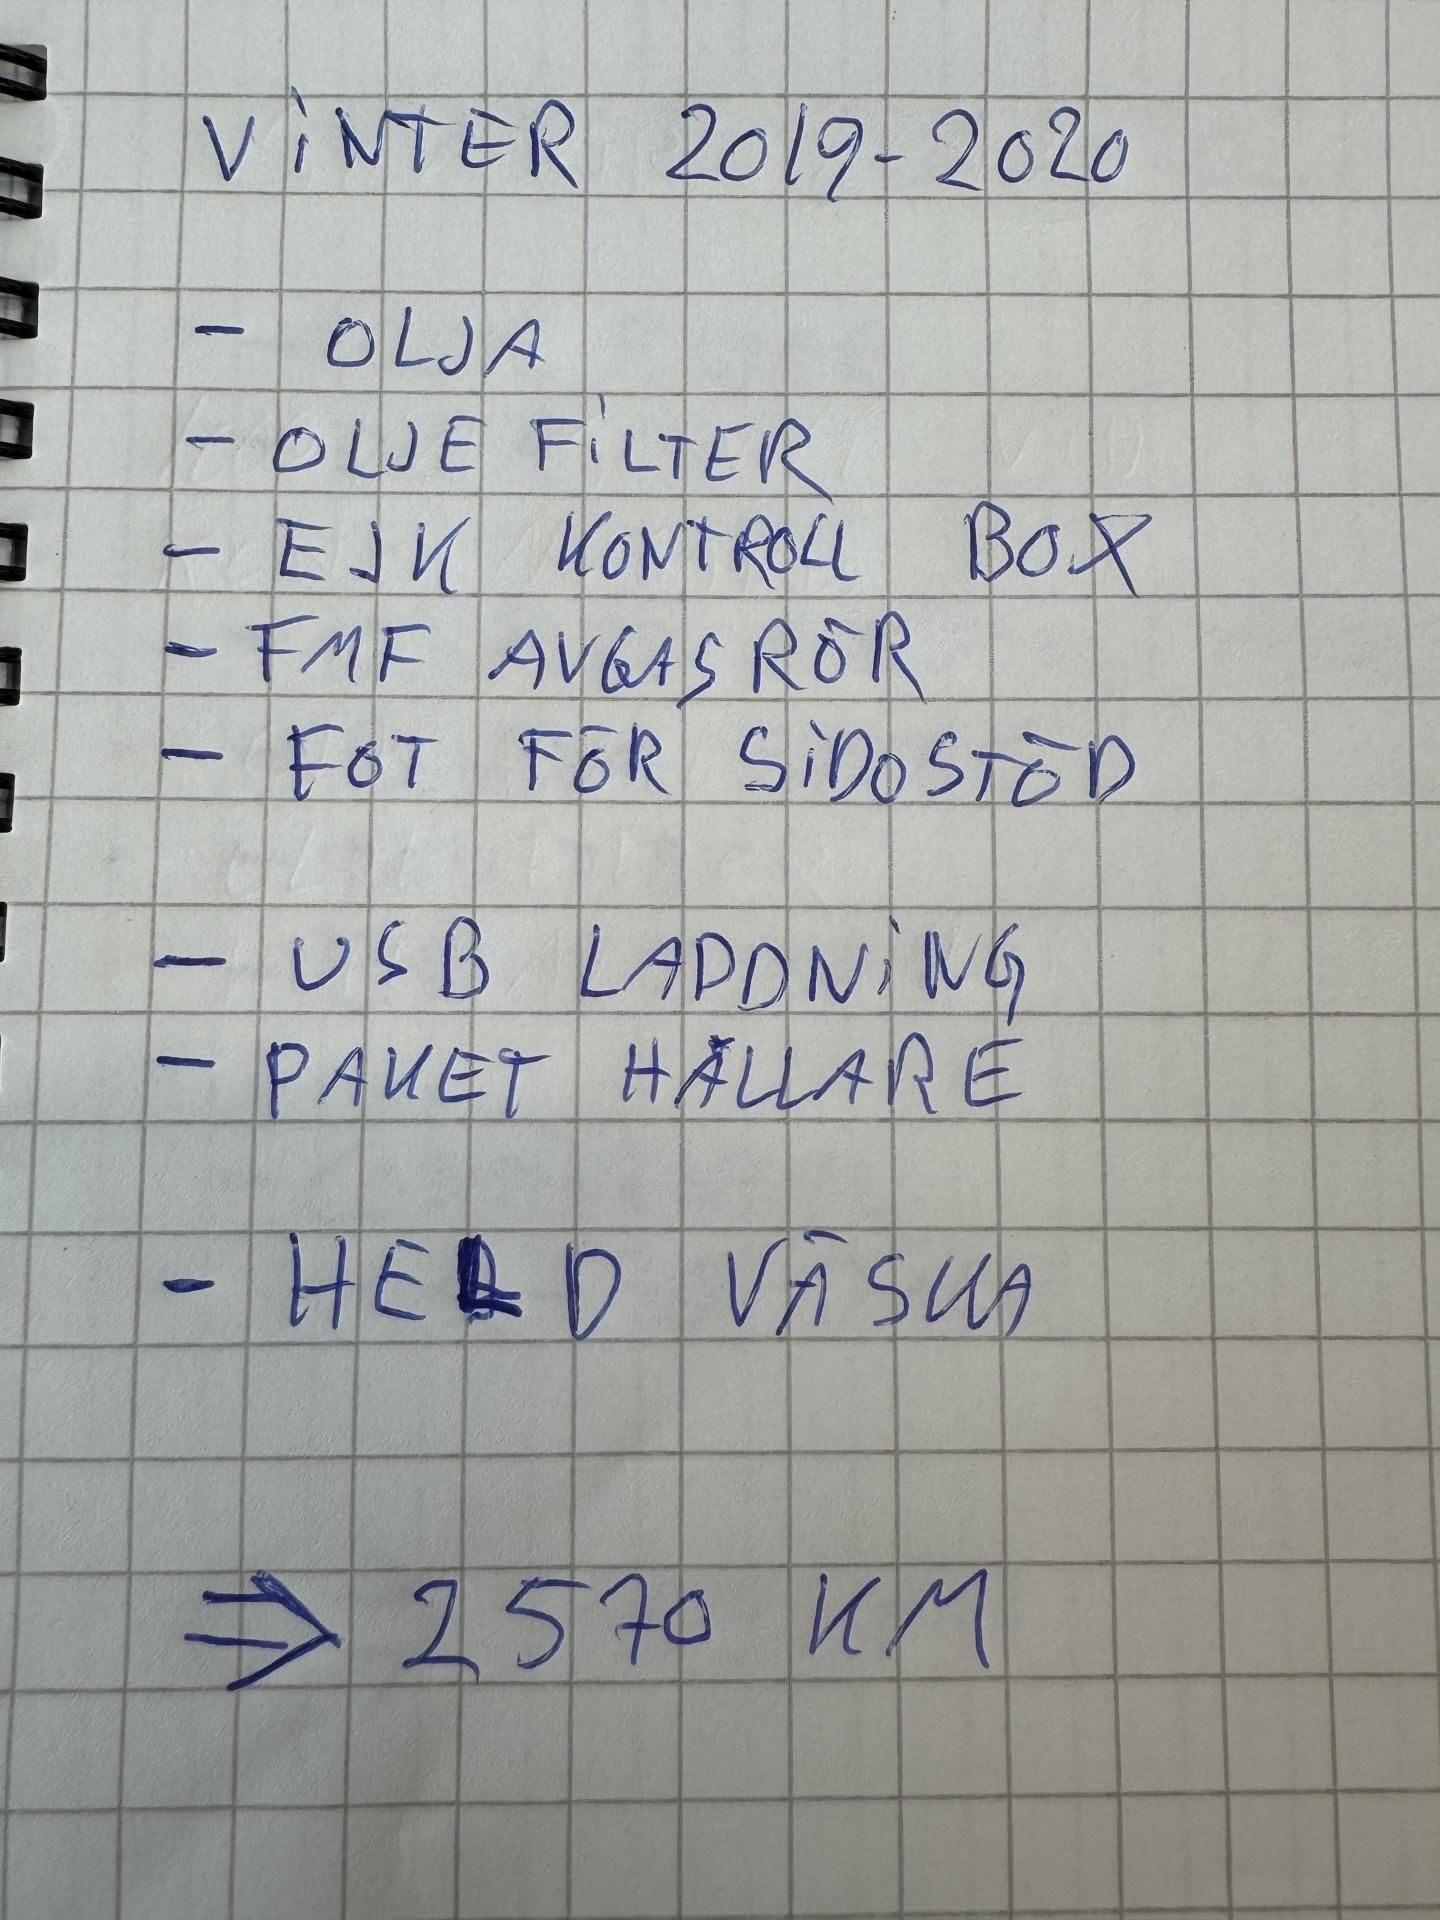 VINTER 2019-2020
- OLJA
- OLJE FILTER
- EJK KONTROLL BOX
- FMF AVGASRÖR
- FOT FÖR SIDOSTÖD
- USB LADDNING
- PAKET HÅLLARE
- HELD VÄSKA
⇒ 2570 KM